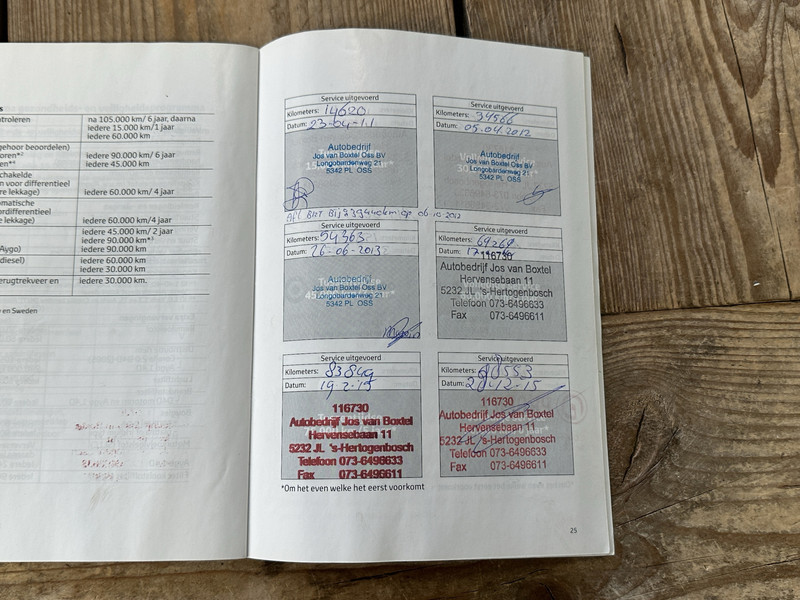 ntroleren
na 105.000 km/ 6 jaar, daarna
iedere 15.000 km/1 jaar
iedere 60.000 km
gehoor beoordelen)
oren*²
iedere 90.000 km/ 6 jaar
iedere 45.000 km
schakelde
n voor differentieel
re lekkage)
iedere 60.000 km/ 4 jaar
omatische
ardifferentieel
e lekkage)
iedere 60.000 km/4 jaar
iedere 45.000 km/ 2 jaar
iedere 90.000 km*³
Aygo)
iedere 90.000 km
diesel)
iedere 60.000 km
iedere 30.000 km
erugtrekveer en
iedere 30.000 km.
en Sweden
Service uitgevoerd
Kilometers: 14620
Datum: 23-04-11
Autobedrijf
Jos van Boxtel Oss BV
Longobardenweg 21
5342 PL OSS
Service uitgevoerd
Kilometers: 34566
Datum: 05.04.2012
Autobedrijf
Jos van Boxtel Oss BV
Longobardenweg 21
5342 PL OSS
op 06-10-2012
Service uitgevoerd
Kilometers: 54363
Datum: 26-06-2013
Autobedrijf
Jos van Boxtel Oss BV
Longobardenweg 21
5342 PL OSS
Service uitgevoerd
Kilometers: 69268
Datum:
116730
Autobedrijf Jos van Boxtel
Hervensebaan 11
5232 JL 's-Hertogenbosch
Telefoon 073-6496633
Fax 073-6496611
Service uitgevoerd
Kilometers: 83849
Datum: 19-2-15
116730
Autobedrijf Jos van Boxtel
Hervensebaan 11
5232 JL 's-Hertogenbosch
Telefoon 073-6496633
Fax 073-6496611
Service uitgevoerd
Kilometers: 98553
Datum: 28-12-15
116730
Autobedrijf Jos van Boxtel
Hervensebaan 11
5232 JL 's-Hertogenbosch
Telefoon 073-6496633
Fax 073-6496611
*Om het even welke het eerst voorkomt
25